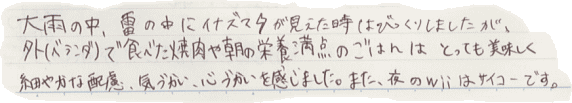 大雨の中、雷の中にイナズマが見えた時はびっくりしましたが、
外(ベランダ)で食べた焼肉や朝の栄養満点のごはんはとっても美味しく
細やかな配慮、気づかい、心づかいを感じました。また、夜のwiiはサイコーです。